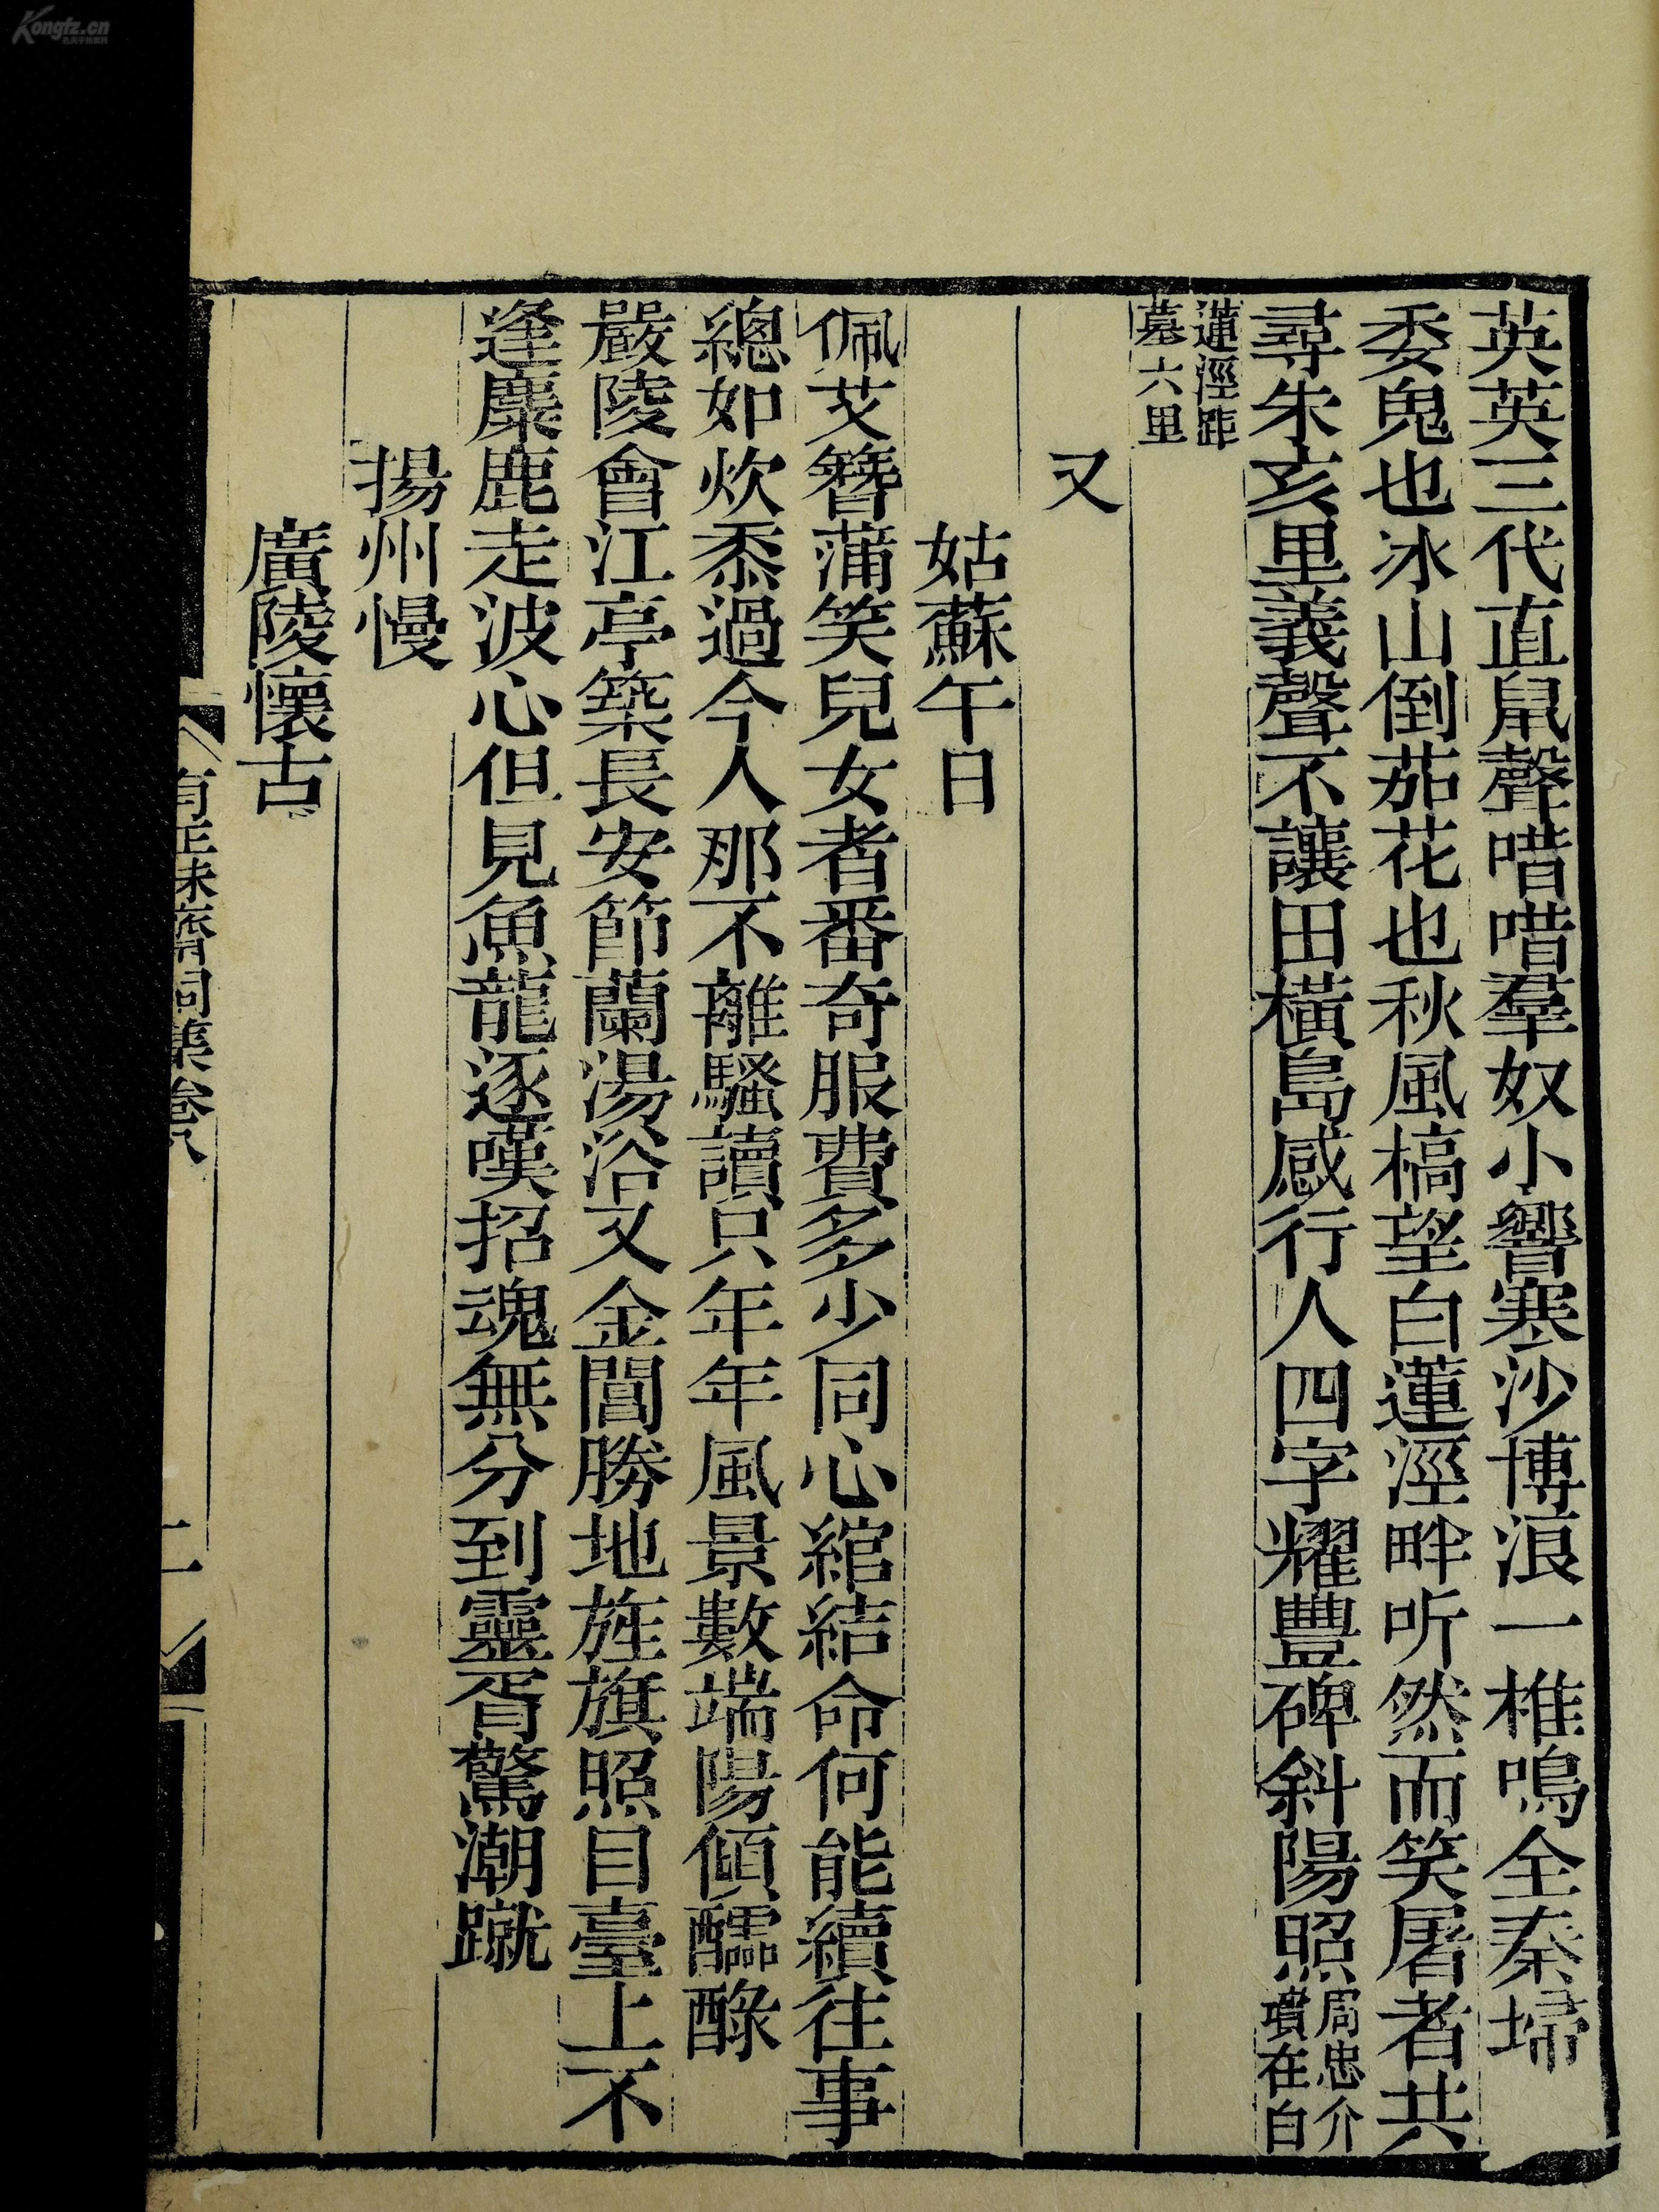 英英三代直㫪聲唶唶羣奴小響寒沙博浪一椎鳴全秦埽
委鬼也冰山倒茄花也秋風槁望白蓮涇畔听然而笑屠者共
尋朱亥里義聲不讓田橫島感行人四字耀豐碑斜陽照周忠介
墳在白
蓮涇距
墓六里
又
姑蘇午日
佩艾簪蒲笑兒女者番奇服費多少同心綰結命何能續往事
總如炊黍過今人那不離騷讀只年年風景數端陽傾醽醁
嚴陵會江亭築長安節蘭湯浴又金閶勝地旌旗照目臺上不
逢麋鹿走波心但見魚龍逐嘆招魂無分到靈胥驚潮蹴
揚州慢
廣陵懷古
有正味齋詞集卷八
二
Kongfz.cn